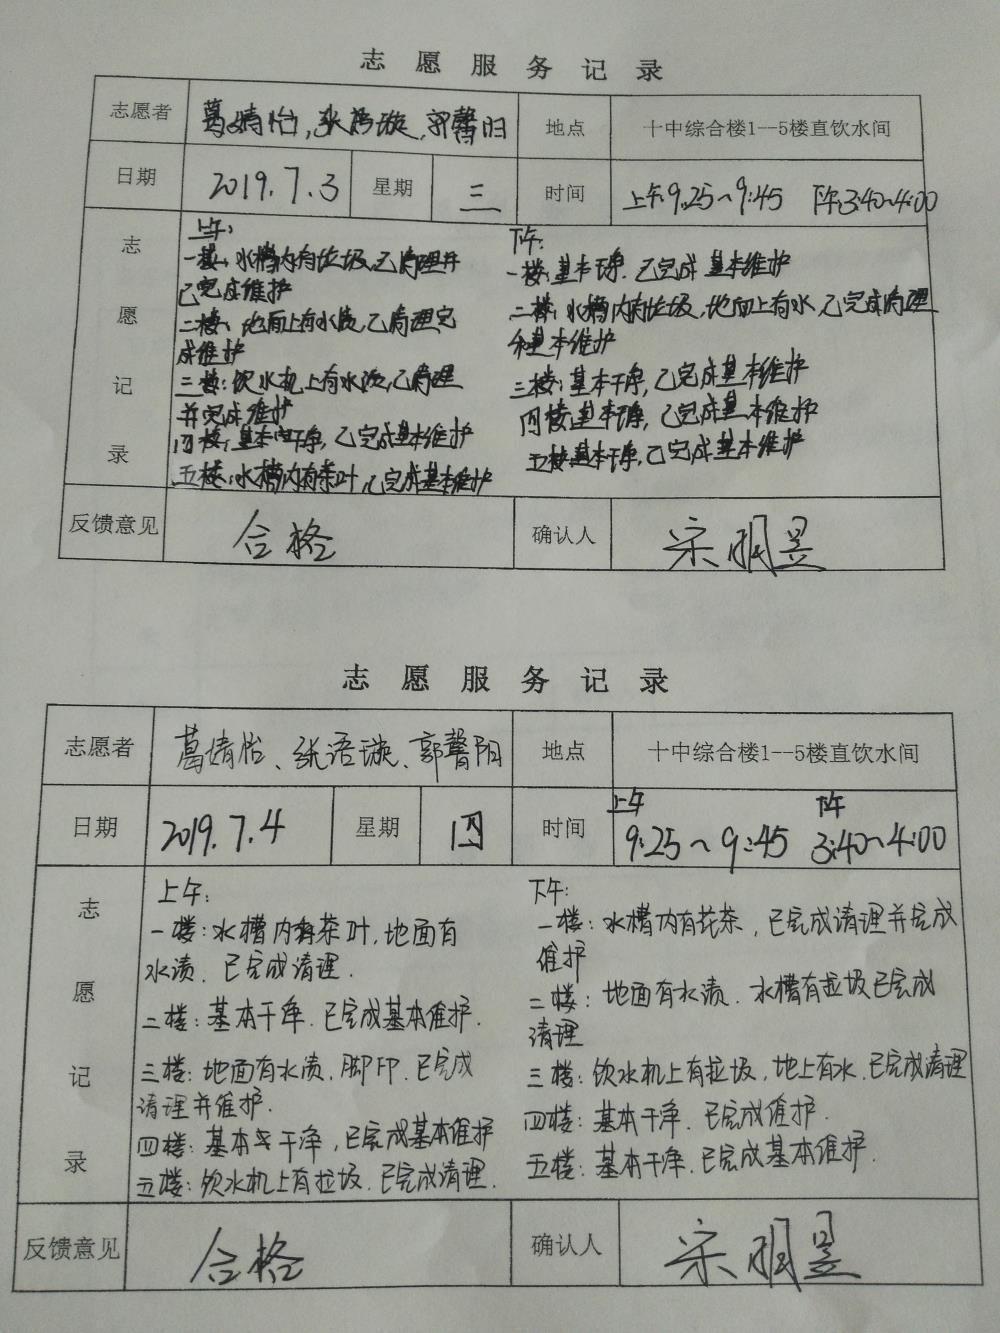 志愿服务记录
志愿者 葛婧怡、张语璇、郭馨阳 地点 十中综合楼1--5楼直饮水间
日期 2019.7.3 星期 三 时间 上午9:25~9:45 下午3:40~4:00
志愿记录
上午:
一楼:水槽内有垃圾,已清理并
已完成维护
二楼:地面上有水渍,已清理完
成维护
三楼:饮水机上有水渍,已清理
并完成维护
四楼:基本干净,已完成基本维护
五楼:水槽内有茶叶,已完成基本维护
下午:
一楼:基本干净.已完成基本维护
二楼:水槽内有垃圾,地面上有水,已完成清理
和基本维护
三楼:基本干净,已完成基本维护
四楼:基本干净,已完成基本维护
五楼:基本干净,已完成基本维护
反馈意见 合格 确认人 宋明昱
志愿服务记录
志愿者 葛婧怡、张语璇、郭馨阳 地点 十中综合楼1--5楼直饮水间
日期 2019.7.4 星期 四 时间 上午 9:25~9:45 下午 3:40~4:00
志愿记录
上午:
一楼:水槽内有茶叶,地面有
水渍.已完成清理.
二楼:基本干净.已完成基本维护.
三楼:地面有水渍,脚印.已完成
清理并维护.
四楼:基本干净,已完成基本维护
五楼:饮水机上有垃圾.已完成清理.
下午:
一楼:水槽内有花茶,已完成清理并完成
维护
二楼:地面有水渍.水槽有垃圾已完成
清理
三楼:饮水机上有垃圾,地上有水.已完成清理
四楼:基本干净.已完成维护.
五楼:基本干净.已完成基本维护.
反馈意见 合格 确认人 宋明昱